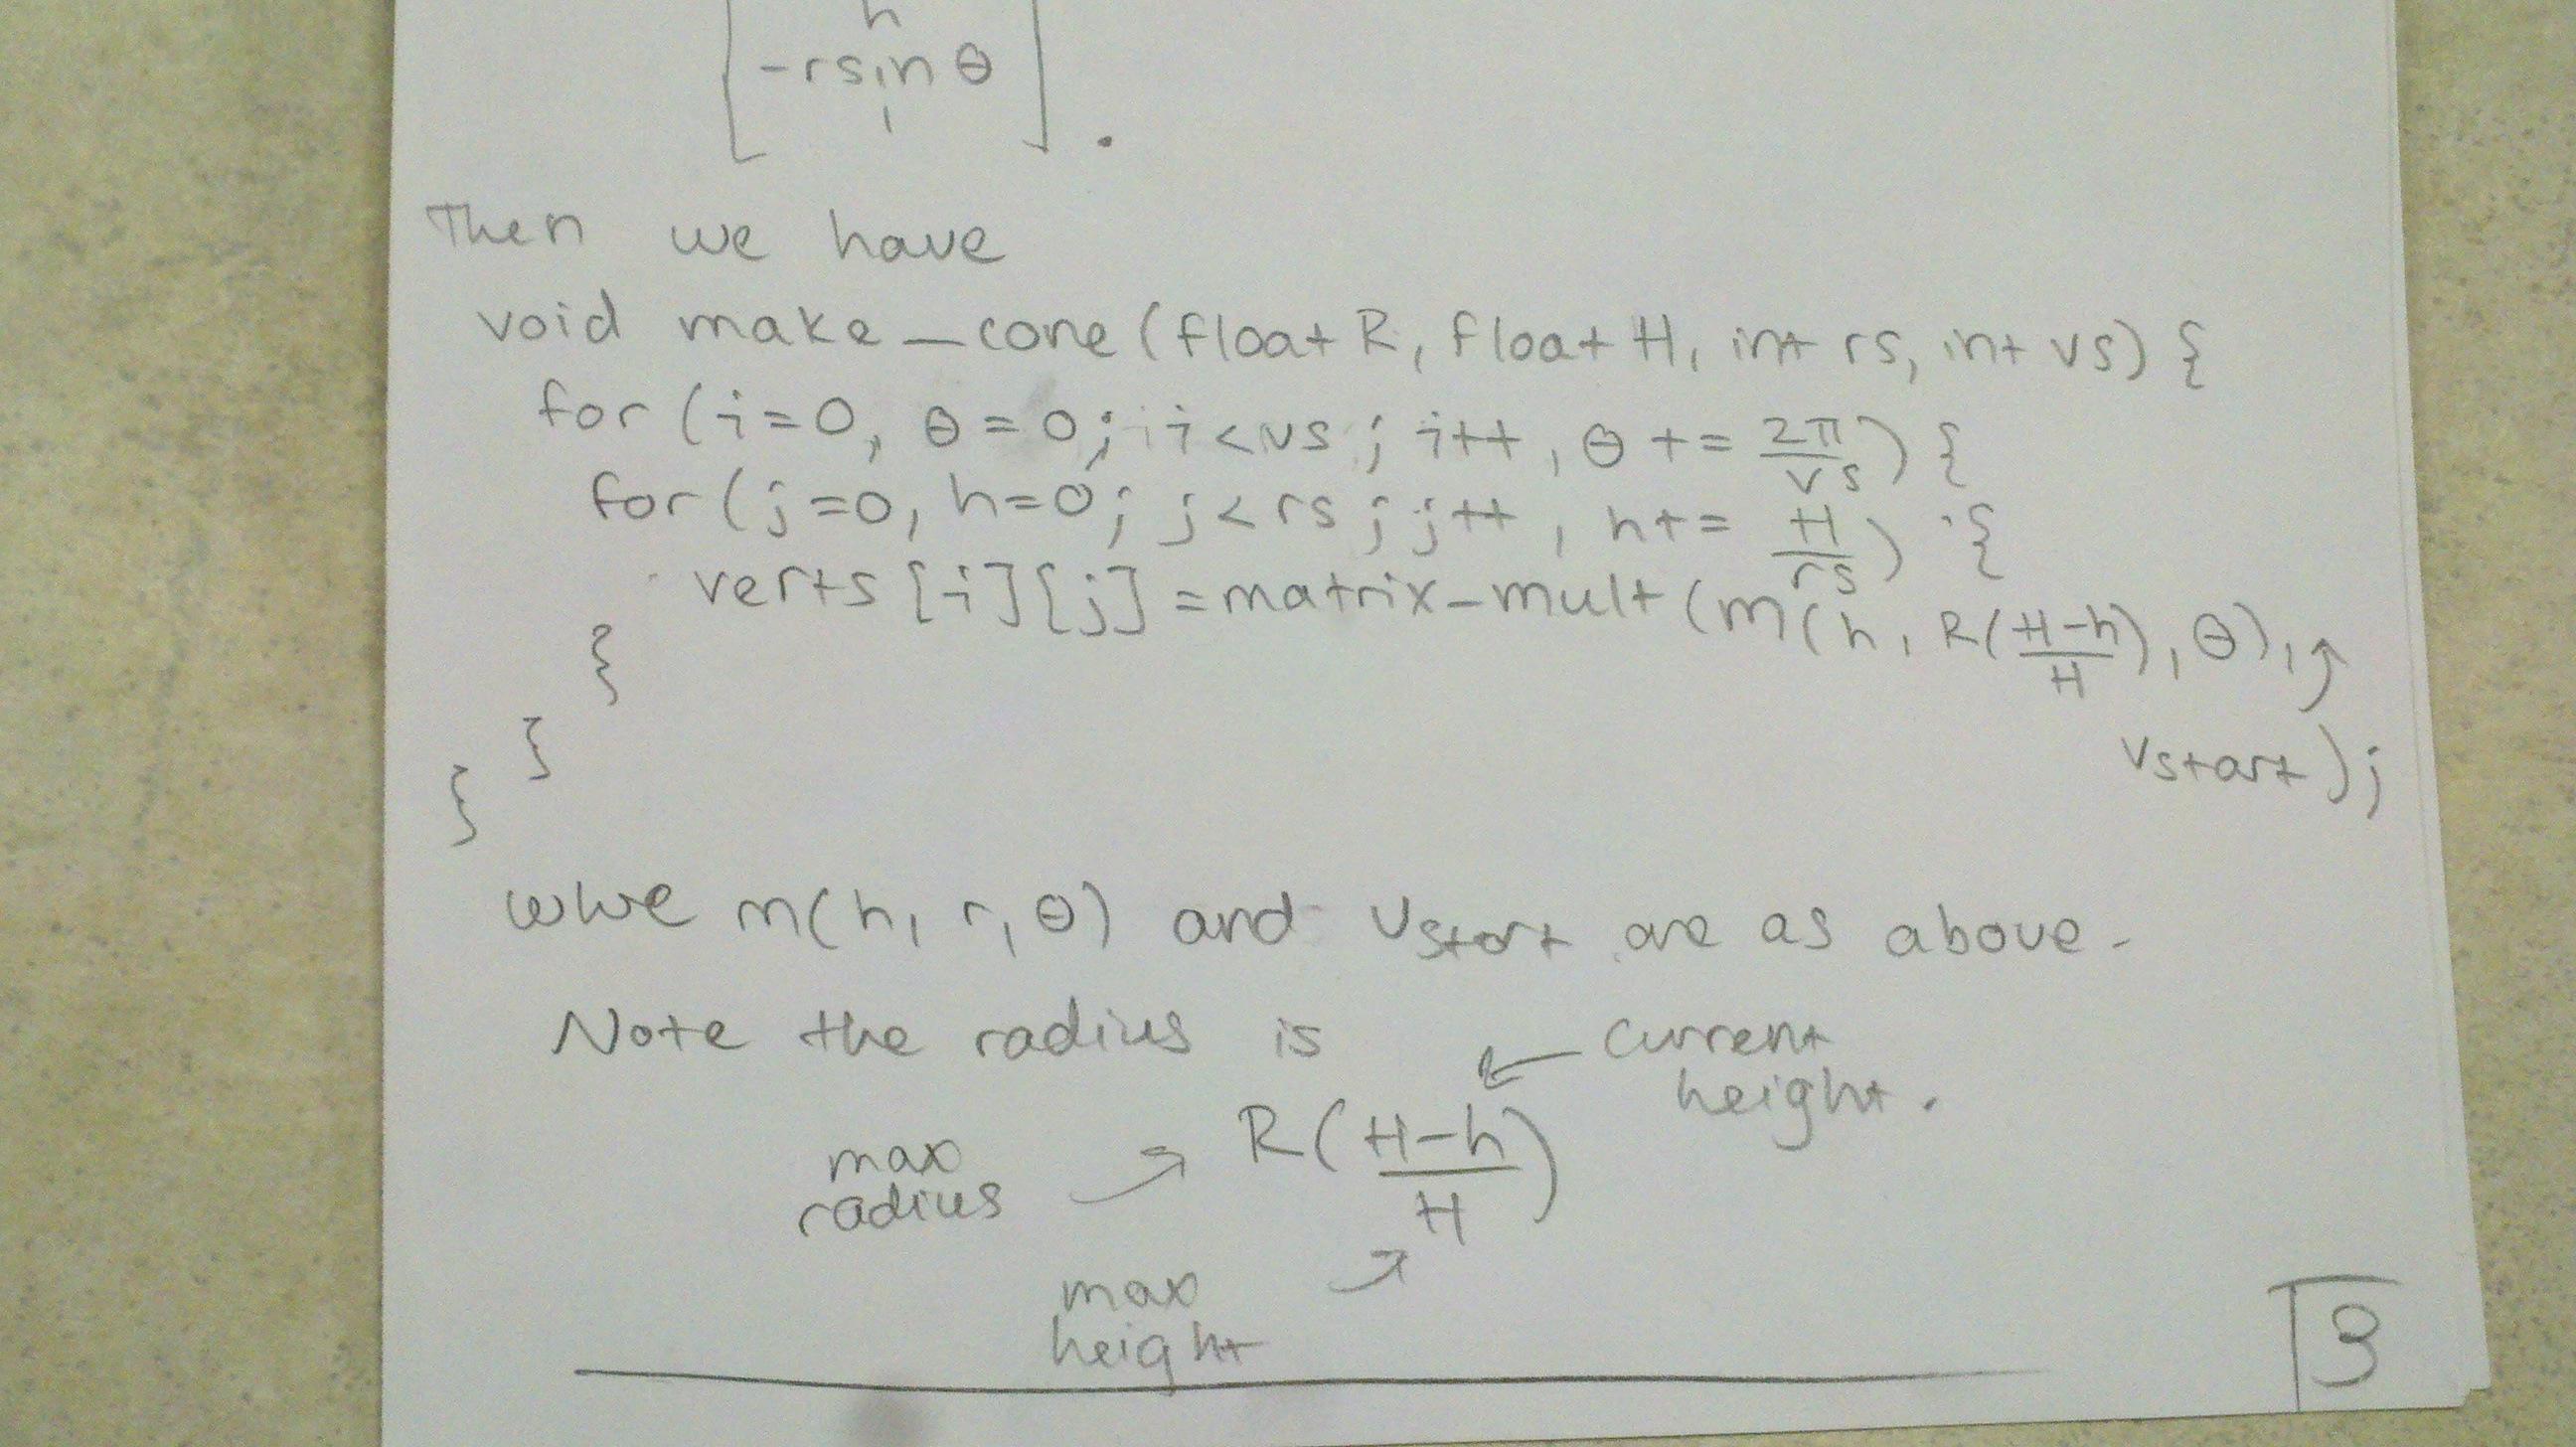 h
-rsin θ
1
.
Then we have
void make_cone (float R, float H, int rs, int vs) {
for (i=0, θ=0; i<vs; i++, θ += 2π/vs) {
for (j=0, h=0; j<rs; j++, h+= H/rs) {
verts [i][j] = matrix-mult (m(h, R(H-h/H), θ),
vstart);
}
}
}
where m(h, r, θ) and vstart are as above.
Note the radius is
current
height.
R(H-h/H)
max
radius
max
height
3